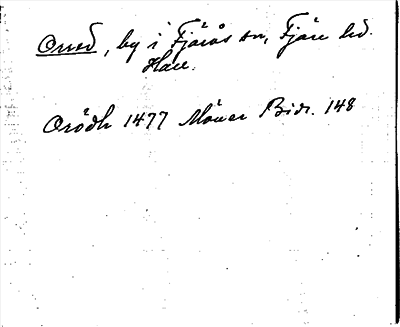 Ored, by i Fjärås sn, Fjäre hd.
Hall.
Orödh 1477 Bidr. 148